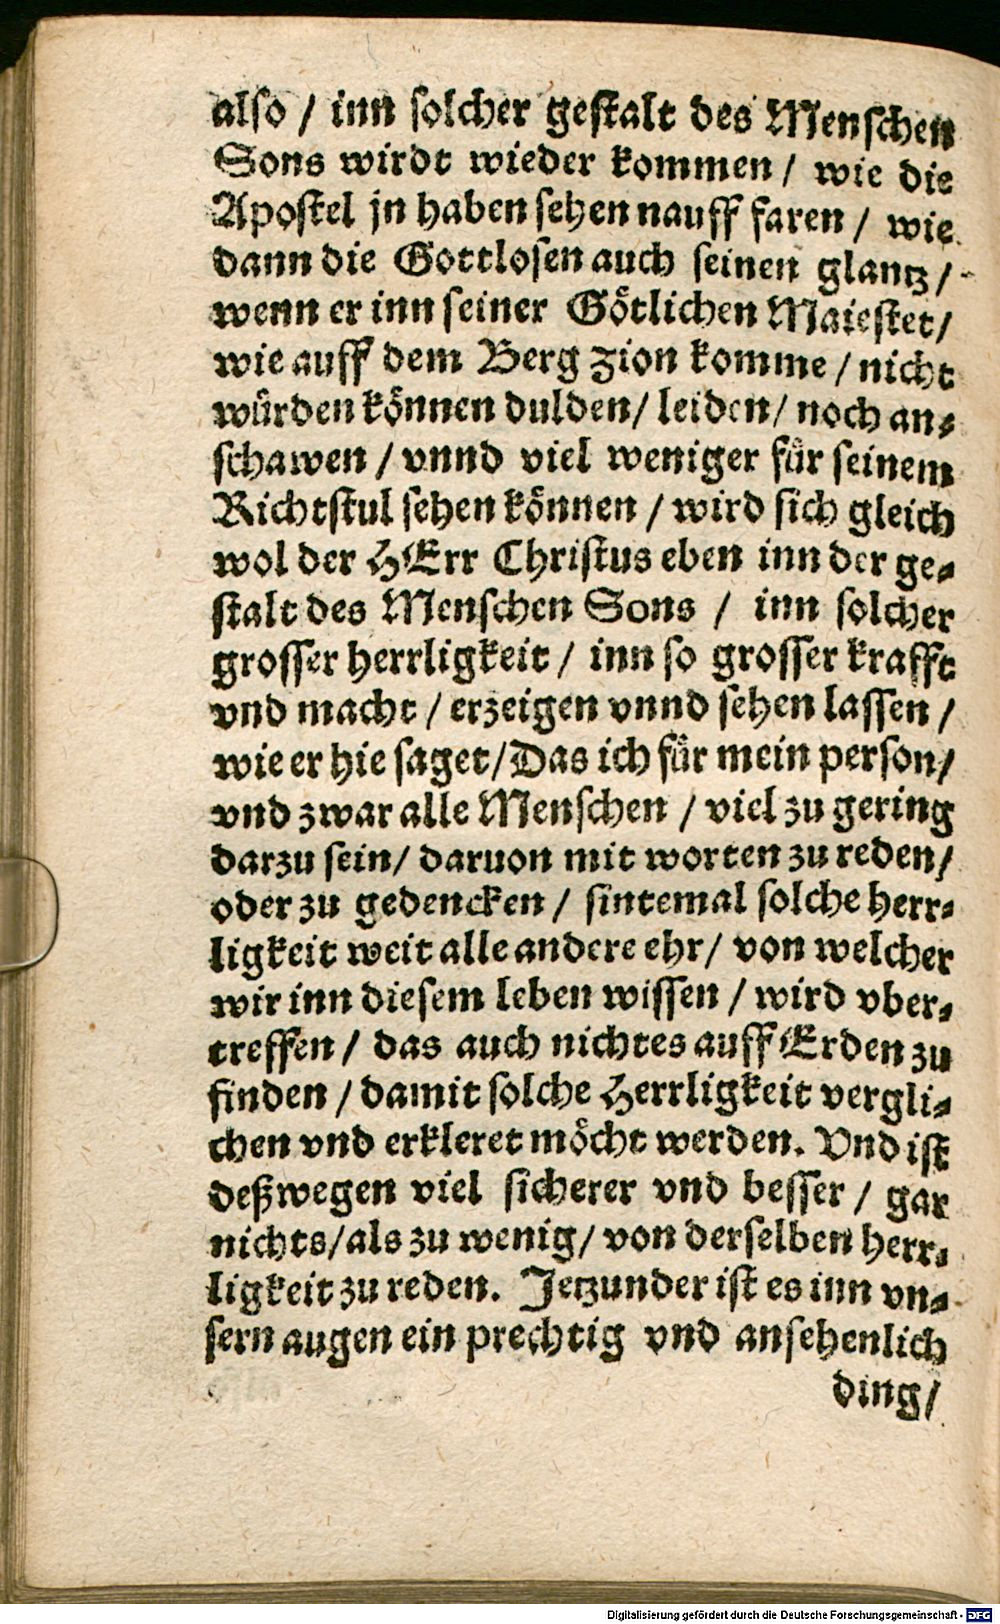 also / inn solcher gestalt des Menschen
Sons wirdt wieder kommen / wie die
Apostel jn haben sehen nauff faren / wie
dann die Gottlosen auch seinen glantz /
wenn er inn seiner Götlichen Maiestet /
wie auff dem Berg Zion komme / nicht
würden können dulden / leiden / noch an⸗
schawen / vnnd viel weniger für seinem
Richtstul sehen können / wird sich gleich
wol der HErr Christus eben inn der ge⸗
stalt des Menschen Sons / inn solcher
grosser herrligkeit / inn so grosser krafft
vnd macht / erzeigen vnnd sehen lassen /
wie er hie saget / Das ich für mein person /
vnd zwar alle Menschen / viel zu gering
darzu sein / daruon mit worten zu reden /
oder zu gedencken / sintemal solche herr⸗
ligkeit weit alle andere ehr / von welcher
wir inn diesem leben wissen / wird vber⸗
treffen / das auch nichtes auff Erden zu
finden / damit solche Herrligkeit vergli⸗
chen vnd erkleret möcht werden. Vnd ist
deßwegen viel sicherer vnd besser / gar
nichts / als zu wenig / von derselben herr⸗
ligkeit zu reden. Jetzunder ist es inn vn⸗
sern augen ein prechtig vnd ansehenlich
ding /
Digitalisierung gefördert durch die Deutsche Forschungsgemeinschaft - DFG